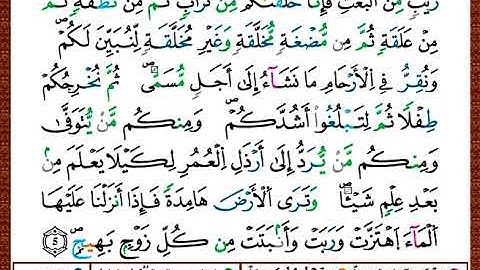 رَيْبٍ مِّنَ الْبَعْثِ فَإِنَّا خَلَقْنَٰكُم مِّن تُرَابٍ ثُمَّ مِن نُّطْفَةٍ ثُمَّ
مِنْ عَلَقَةٍ ثُمَّ مِن مُّضْغَةٍ مُّخَلَّقَةٍ وَغَيْرِ مُخَلَّقَةٍ لِّنُبَيِّنَ لَكُمْ ۖ
وَنُقِرُّ فِى الْأَرْحَامِ مَا نَشَآءُ إِلَىٰٓ أَجَلٍ مُّسَمًّۭى ۖ ثُمَّ نُخْرِجُكُمْ
طِفْلًا ثُمَّ لِتَبْلُغُوٓا۟ أَشُدَّكُمْ ۖ وَمِنكُم مَّن يُتَوَفَّىٰ
وَمِنكُم مَّن يُرَدُّ إِلَىٰٓ أَرْذَلِ الْعُمُرِ لِكَيْلَا يَعْلَمَ مِنۢ
بَعْدِ عِلْمٍ شَيْـًٔا ۖ وَتَرَى الْأَرْضَ هَامِدَةً فَإِذَآ أَنزَلْنَا عَلَيْهَا
الْمَآءَ اهْتَزَّتْ وَرَبَتْ وَأَنۢبَتَتْ مِن كُلِّ زَوْجٍۭ بَهِيجٍ ۖ 5